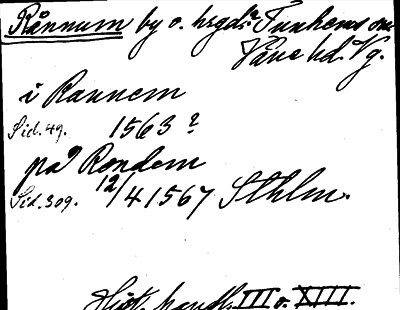 Rånnum by o. hrgd. Tunhems sn
Väne hd. Vg.
i Rannem
Sid. 49. 1563 ?
på Rondem
Sid. 309. 12/4 1567 Sthlm.
Hist. handl. III o. XIII.